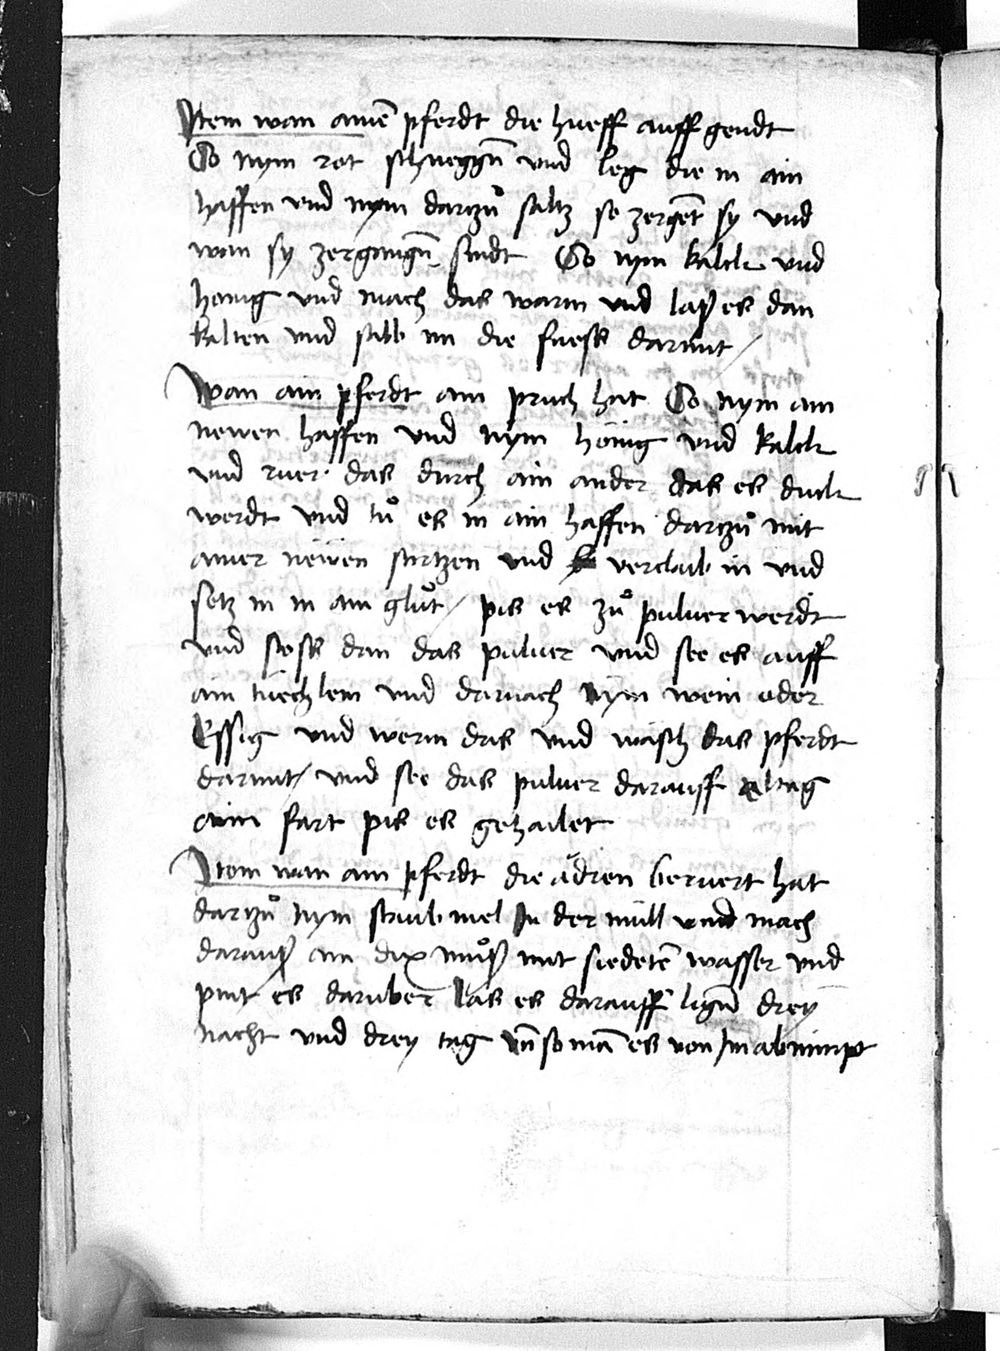 Item wan ainē pferdt die hueff auff gendt
So nym rot schneggn̄ vnd leg die in ain
haffen vnd nym darzů saltz so zergēt sy vnd
wan sy zergangn̄ sindt So nym kalck vnd
honig vnd mach das warm vnd laß es dan
kalten vnd salb im die fuess darmit /
Wan ain pferdt ain pruch hat So nym ain
newen haffen vnd nym honig vnd kalck
vnd ruer das durch ain ander das es dick
werdt vnd tů es in ain haffen darzů mit
ainer newen sturtzen vnd verclaib in vnd
setz in in ain glůt / pis es zů puluer werdt
vnd stoss dan das puluer vnd see es auff
ain tuechlein vnd darnach nym wein oder
Essig vnd werm das vnd wasch das pferdt
darmit / vnd see das puluer darauff altag
ain fart pis es gehailet
Item wan ain pferdt die ädren beruert hat
darzů nym staub mel In der müll vnd mach
darauß ain dix můß mit siedetē wasser vnd
pint es daruber las es darauff lign̄ drey
nacht vnd drey tag vn̄ so mā es von Im abnimpt